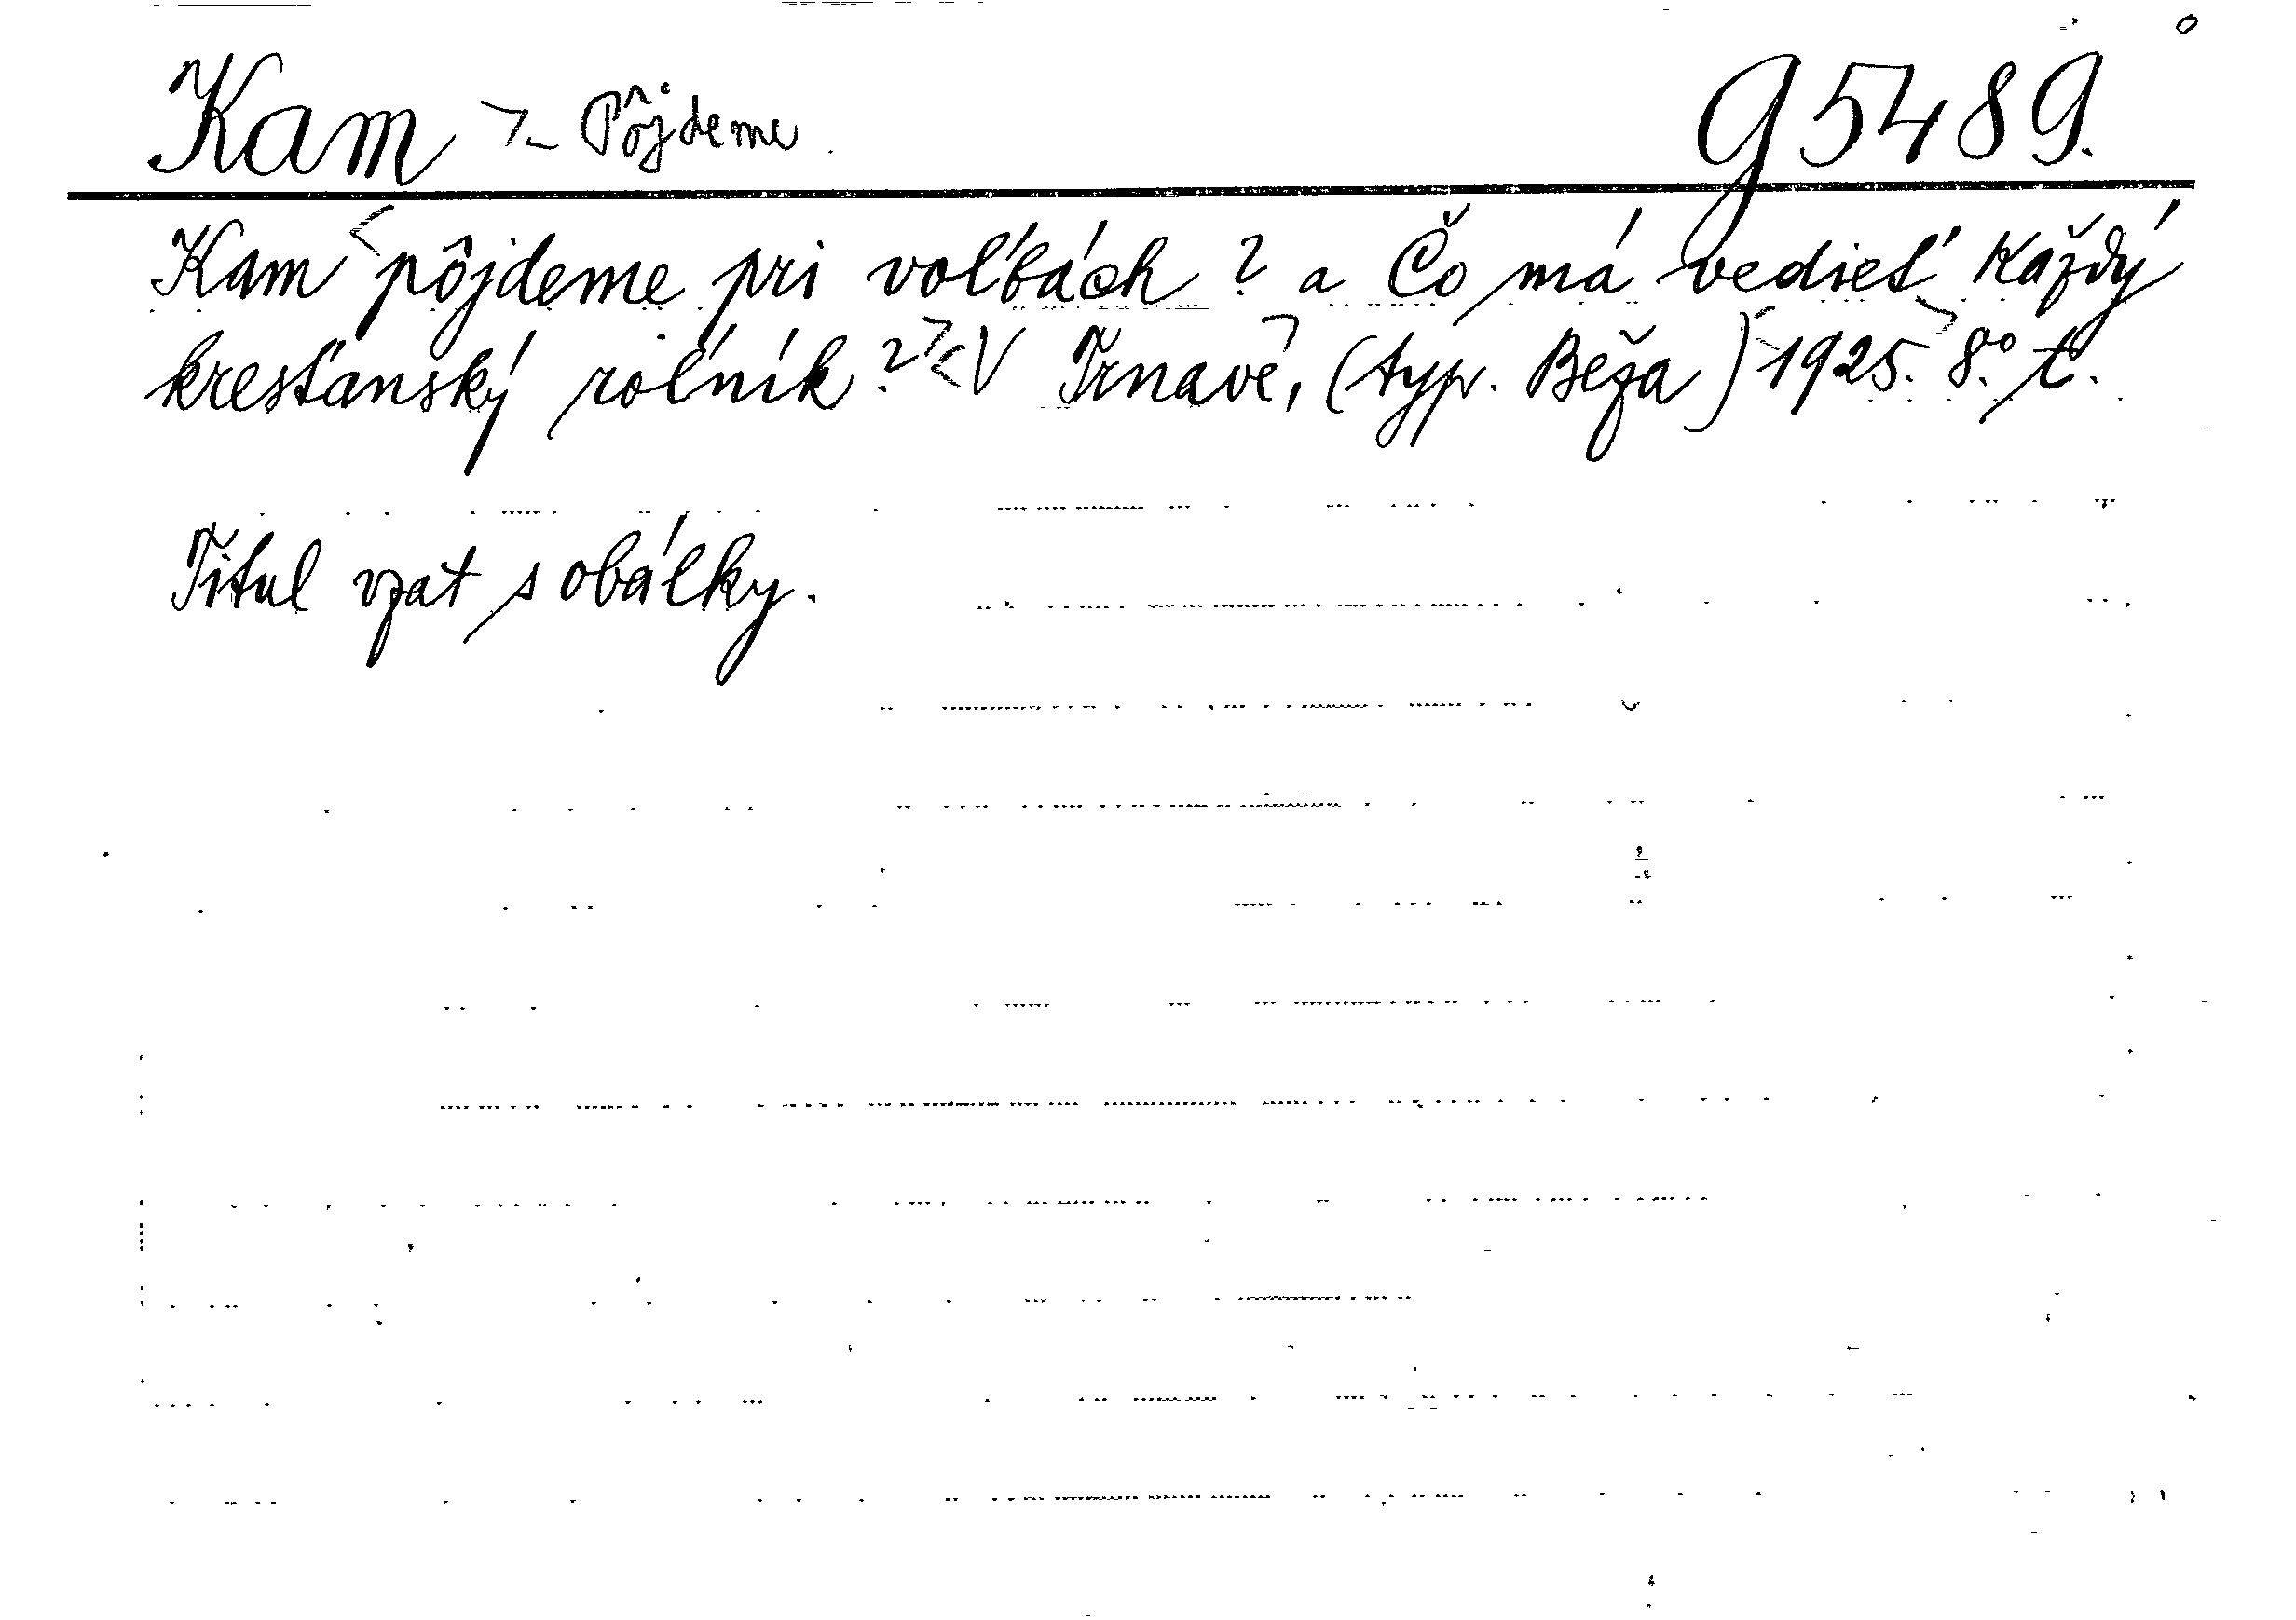 Kam >- Pôjdeme g 5489.
Kam <pôjdeme pri voľbách? a Čo má vedieť každý
kresťanský roľník?> <V Trnavě, (typ. Běža) 1925. 8.° t.
Titul vzat s obálky.